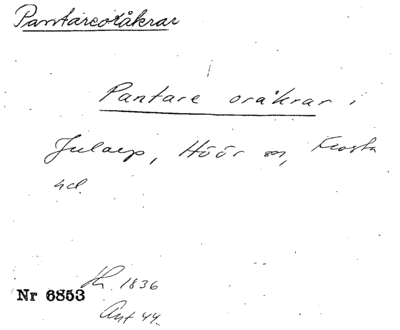 Pantareoråkrar
Pantare oråkrar i
Julaep, Höör sn, Frosta
hd.
Nr 6853
Hr. 1836
Ant 44.